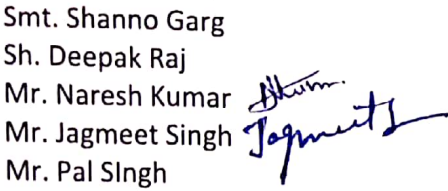 Smt. Shanno Garg
Sh. Deepak Raj
Mr. Naresh Kumar
Mr. Jagmeet Singh Jagmeet
Mr. Pal SIngh